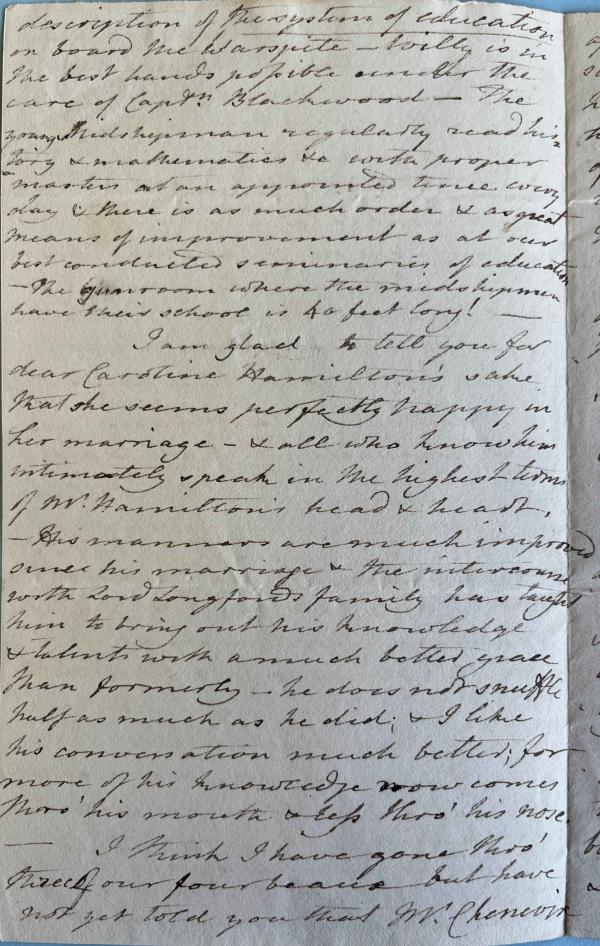 description of the system of education
on board the Warspite – Willy is in
the best hands possible under the
care of Captn. Blackwood – The
young Midshipman regularly read his=
tory & mathematics &c with proper
masters at an appointed time every
day & there is as much order & as great
means of improvement as at our
best conducted seminaries of education
– The gunroom where the midshipmen
have their school is 40 feet long! –
I am glad to tell you for
dear Caroline Hamilton's sake
that she seems perfectly happy in
her marriage – & all who know him
intimately speak in the highest terms
of Mr. Hamilton's head & heart,
– His manners are much improved
since his marriage & the intercourse
with Lord Longford's family has taught
him to bring out his knowledge
& talents with a much better grace
than formerly – he does not snuffle
half as much as he did; & I like
his conversation much better; for
more of his knowledge now comes
thro' his mouth & less thro' his nose.
– I think I have gone thro'
three of our four beaux but have
not yet told you that Mr. Chenevix